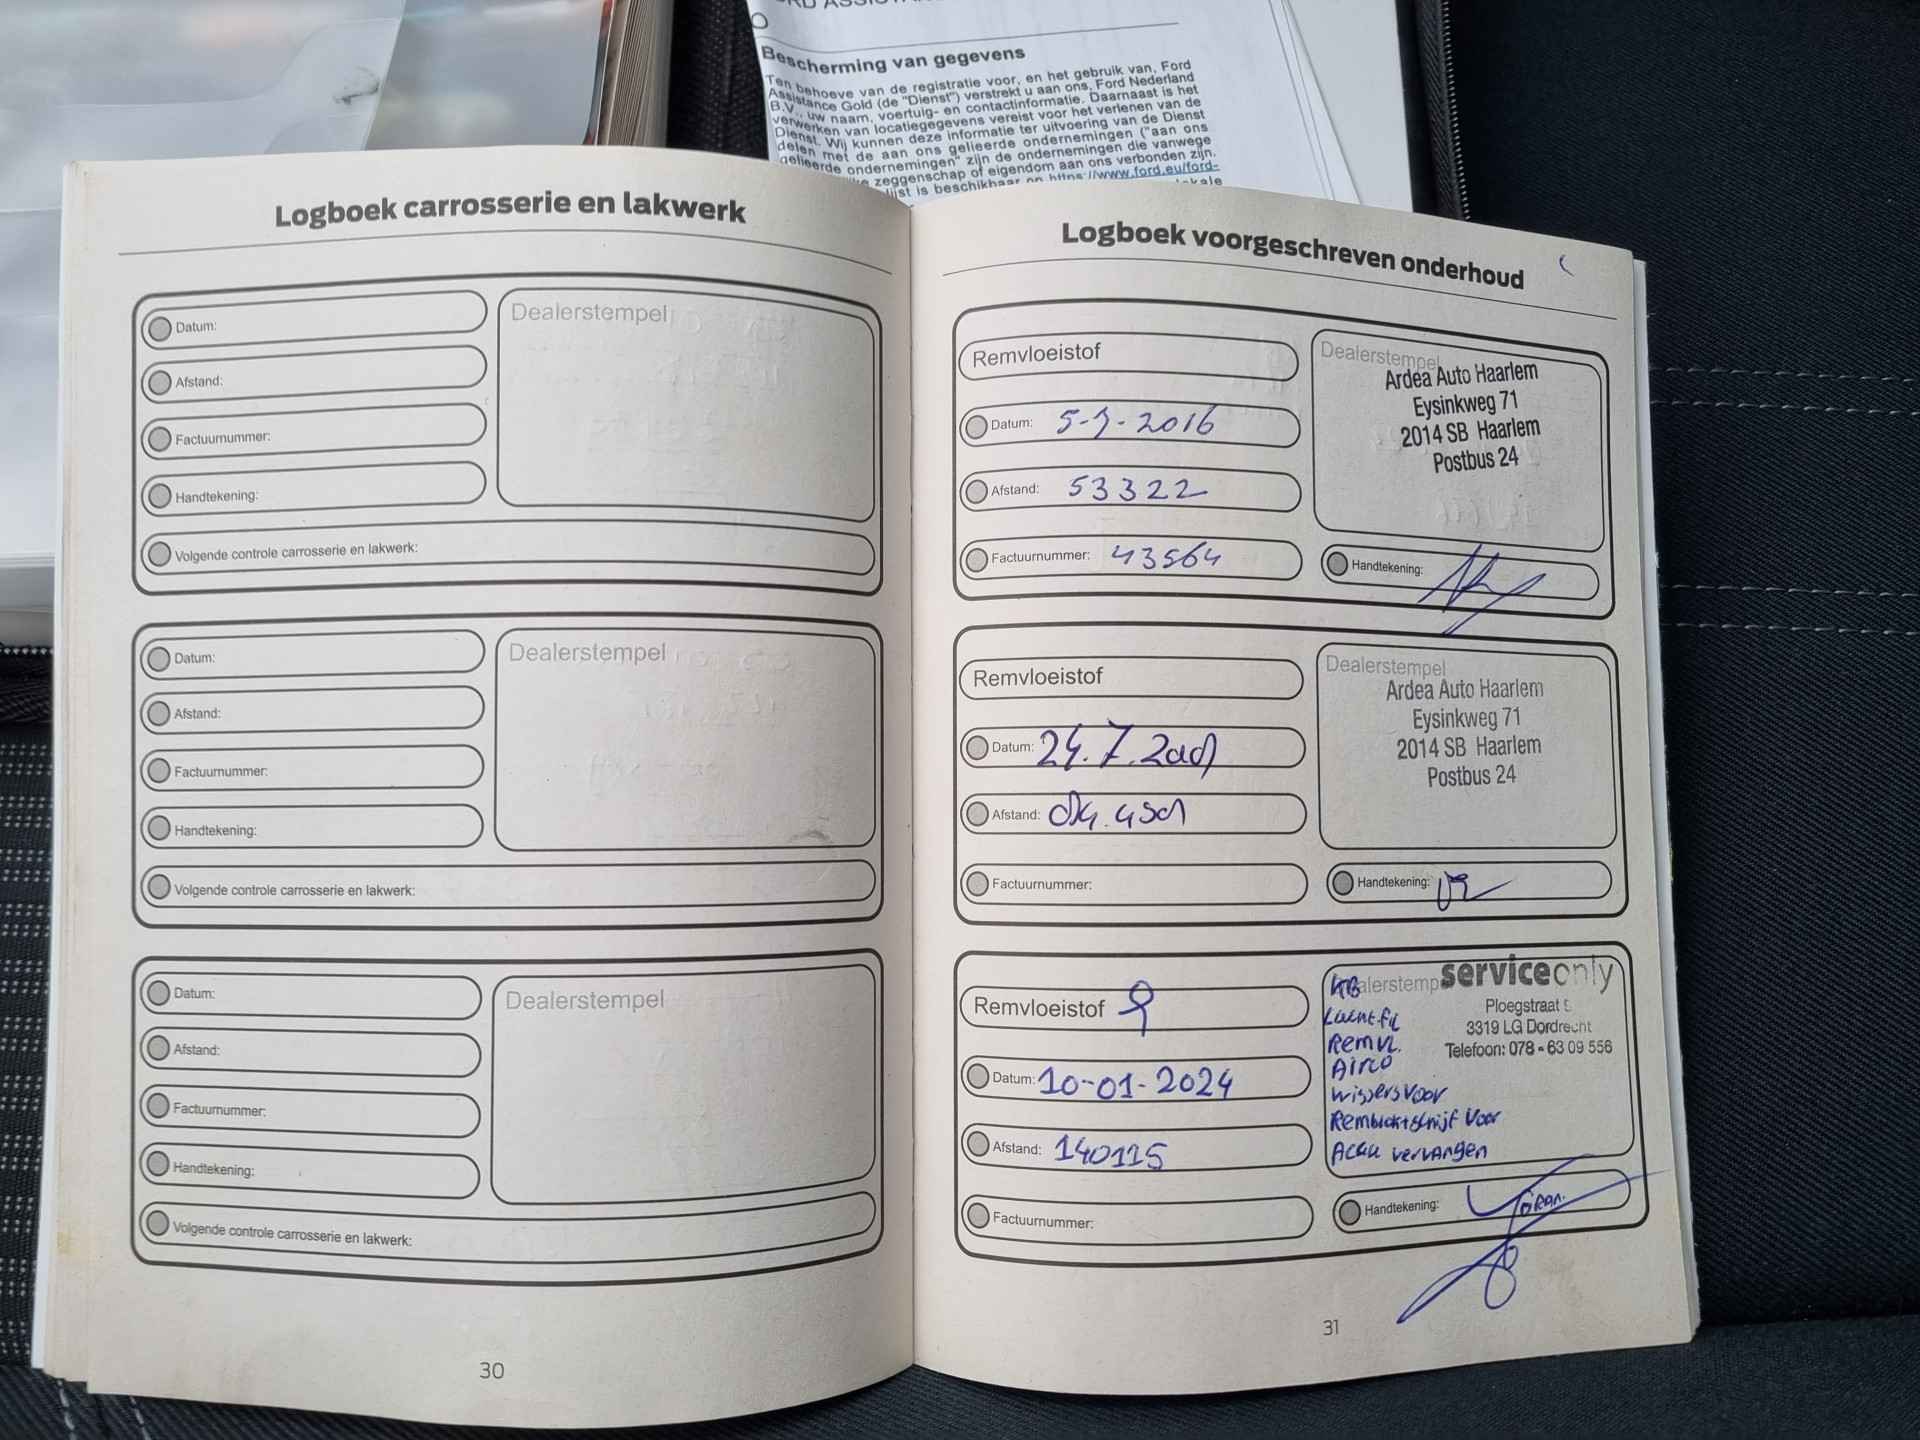 Bescherming van gegevens
Ten behoeve van de registratie voor, en het gebruik van, Ford
Assistance Gold (de "Dienst") verstrekt u aan ons, Ford Nederland
B.V., uw naam, voertuig- en contactinformatie. Daarnaast is het
verwerken van locatiegegevens vereist voor het verlenen van de
Dienst. Wij kunnen deze informatie ter uitvoering van de Dienst
delen met de aan ons gelieerde ondernemingen ("aan ons
gelieerde ondernemingen" zijn de ondernemingen die vanwege
zeggenschap of eigendom aan ons verbonden zijn.
is beschikbaar op https://www.ford.eu/ford-
Logboek carrosserie en lakwerk
Datum:
Afstand:
Factuurnummer:
Handtekening:
Dealerstempel
Volgende controle carrosserie en lakwerk:
Datum:
Afstand:
Factuurnummer:
Handtekening:
Dealerstempel
Volgende controle carrosserie en lakwerk:
Datum:
Afstand:
Factuurnummer:
Handtekening:
Dealerstempel
Volgende controle carrosserie en lakwerk:
30
Logboek voorgeschreven onderhoud
Remvloeistof
Datum: 5-9-2016
Afstand: 53322
Factuurnummer: 43564
Dealerstempel
Ardea Auto Haarlem
Eysinkweg 71
2014 SB Haarlem
Postbus 24
Handtekening:
Remvloeistof
Datum: 24.7.
Afstand:
Factuurnummer:
Dealerstempel
Ardea Auto Haarlem
Eysinkweg 71
2014 SB Haarlem
Postbus 24
Handtekening:
Remvloeistof
Datum: 10-01-2024
Afstand: 140115
Factuurnummer:
Dealerstemp
serviceonly
Ploegstraat
3319 LG Dordrecht
Telefoon: 078 - 63 09 556
Remvl.
Airco
wissers voor
Remblok+schijf voor
Accu vervangen
Handtekening:
31